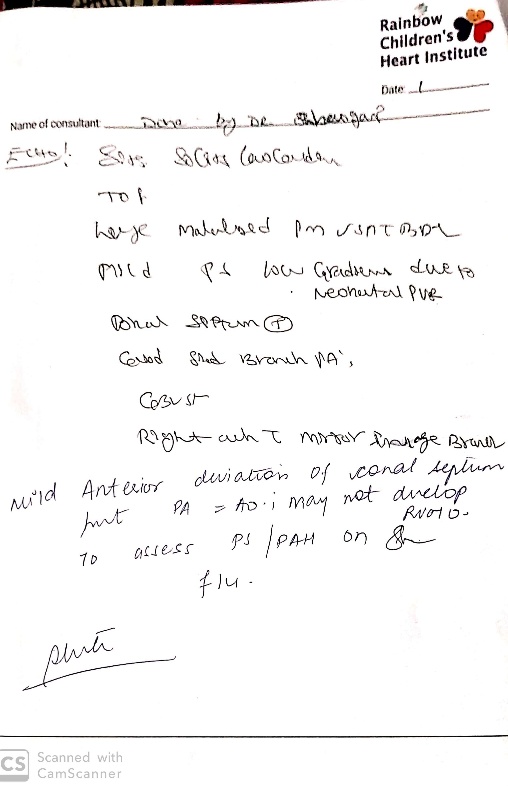 Rainbow
Children's
Heart Institute
Date
Name of consultant Done by Dr
ECHO!
TOF
Large Malaligned Pm VSD
Mild PS low Gradient due to
Neonatal PVR
Conal septum +
Good sized Branch PA's
Right arch mirror image Branch
Mild Anterior deviation of conal septum
but PA = AO; may not develop
RVOTO.
To assess PS / PAH on
f/u.
CS Scanned with
CamScanner